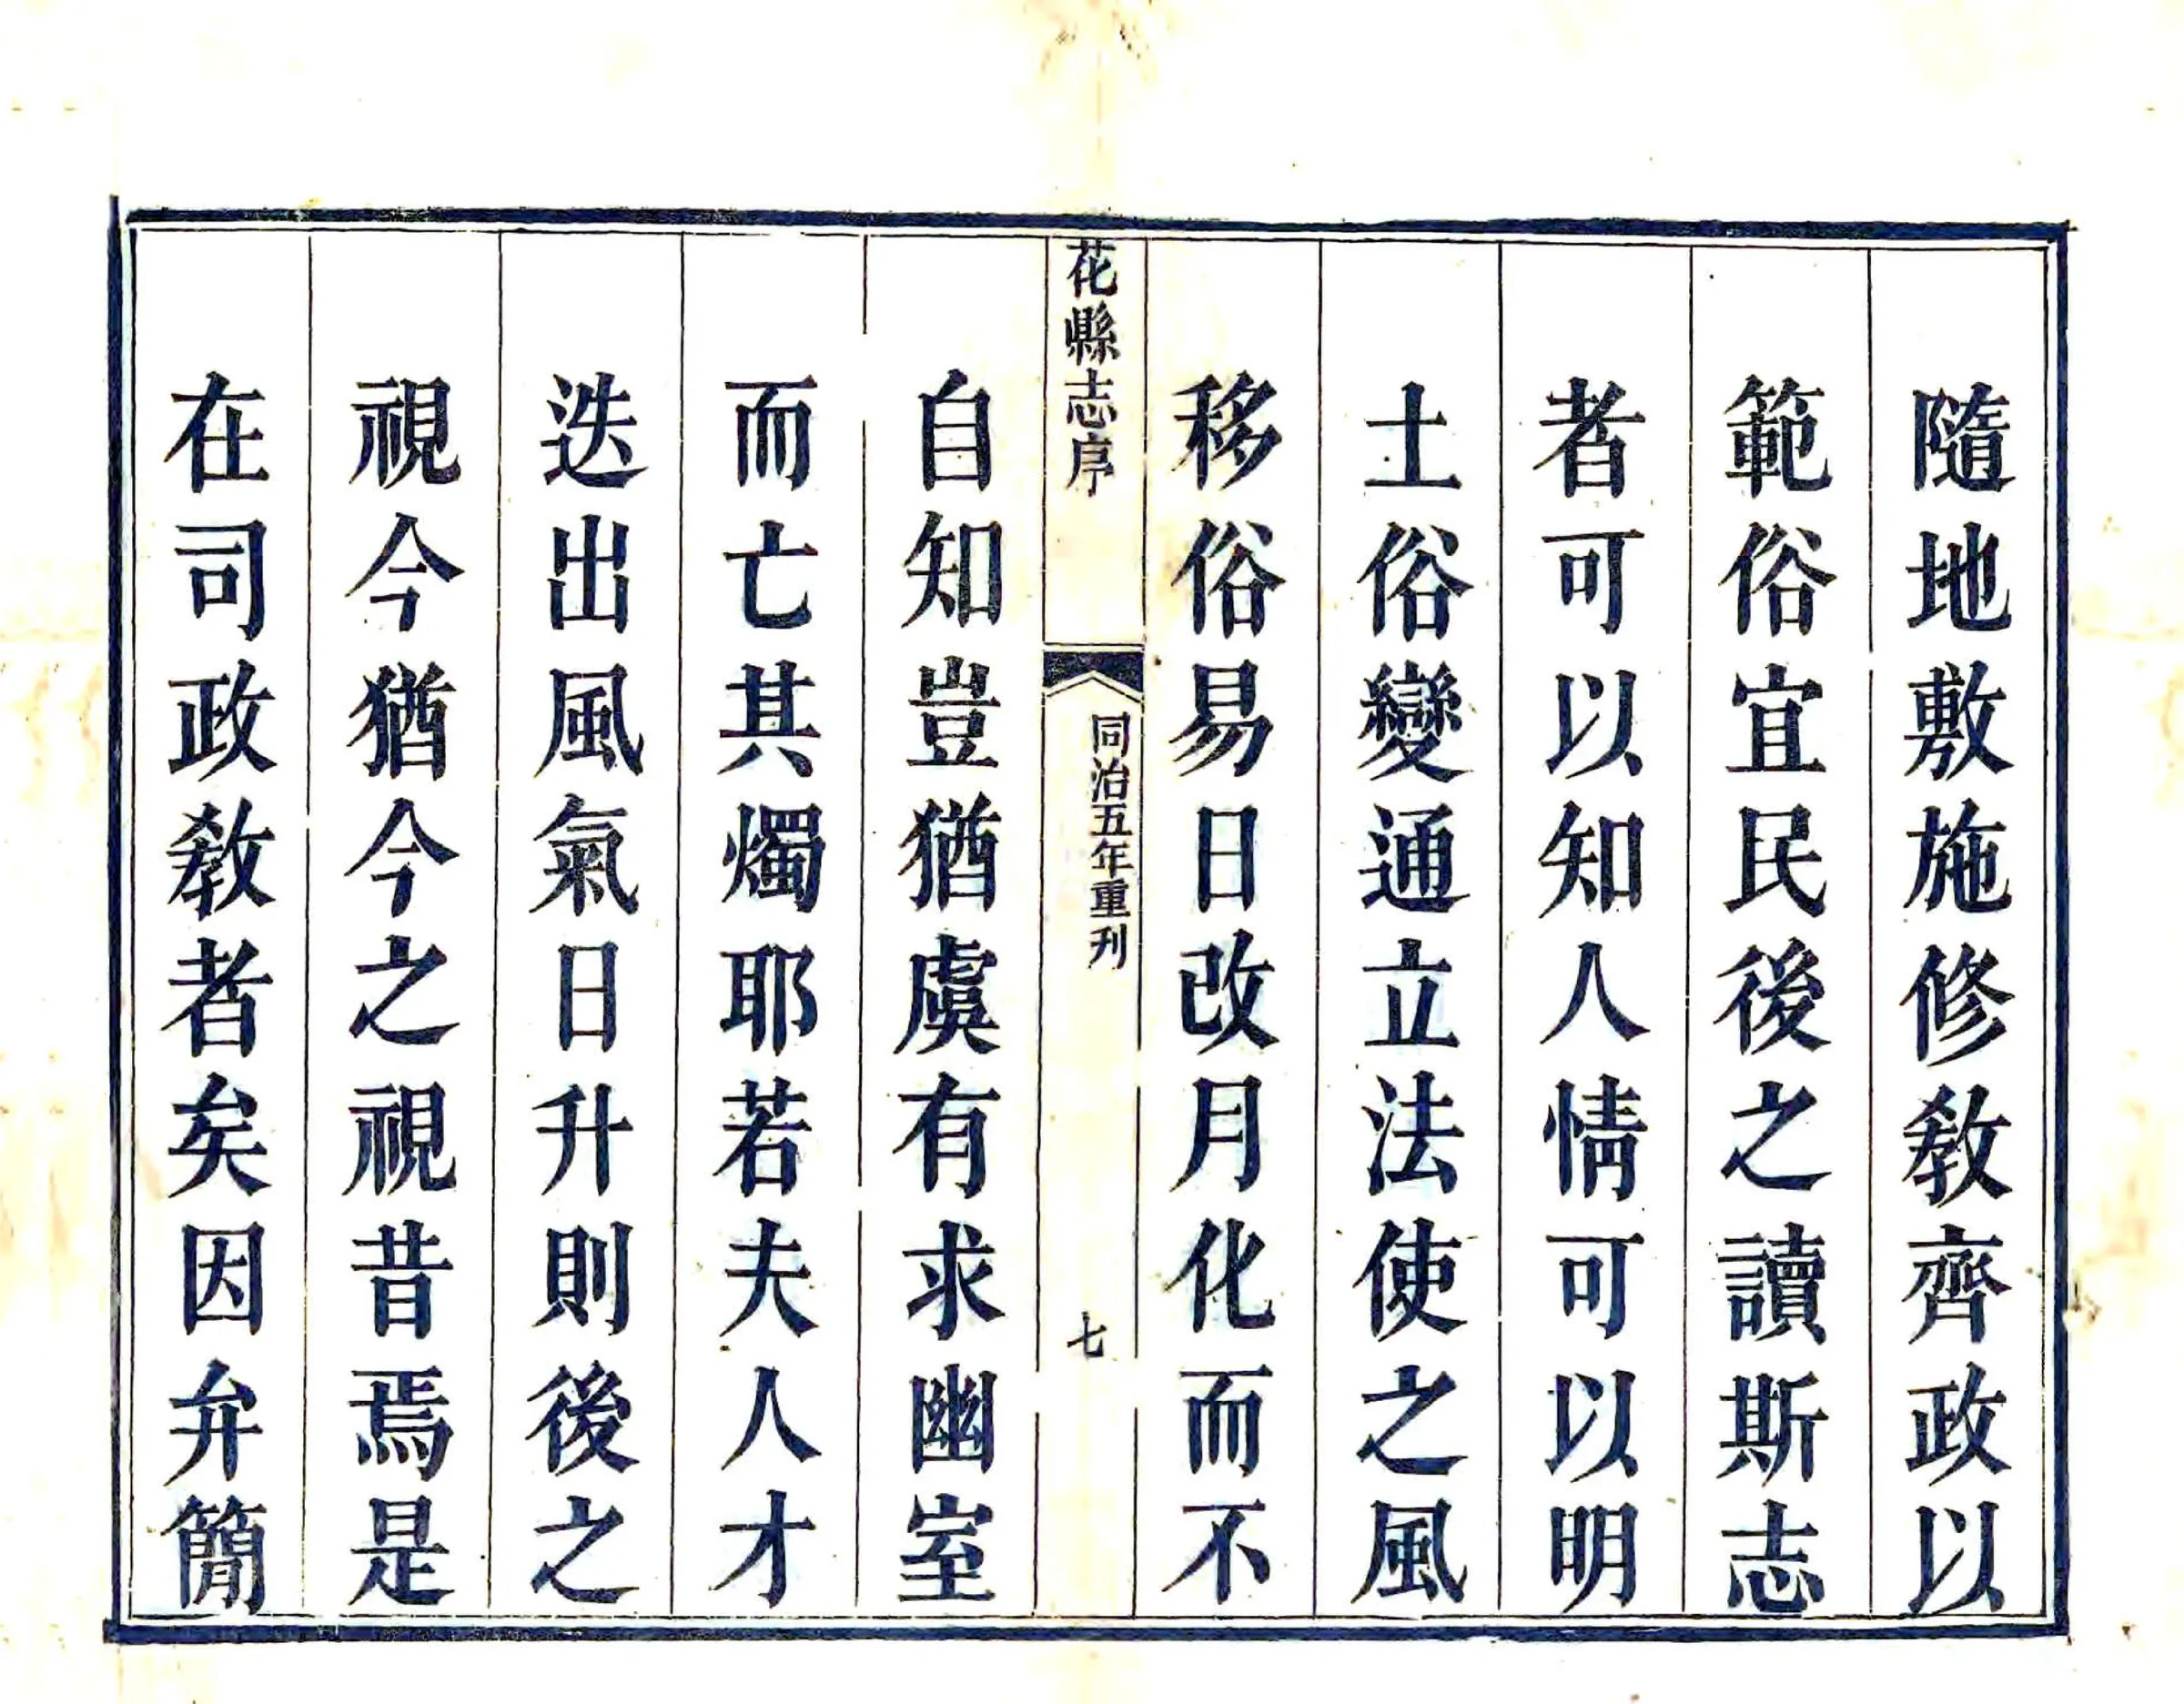 隨地敷施修敎齊政以
範俗宜民後之讀斯志
者可以知人情可以明
土俗變通立法使之風
移俗易日改月化而不
花縣志序
同治五年重刋
七
自知豈猶虞有求幽室
而亡其燭耶若夫人才
迭出風氣日升則後之
視今猶今之視昔焉是
在司政敎者矣因弁簡